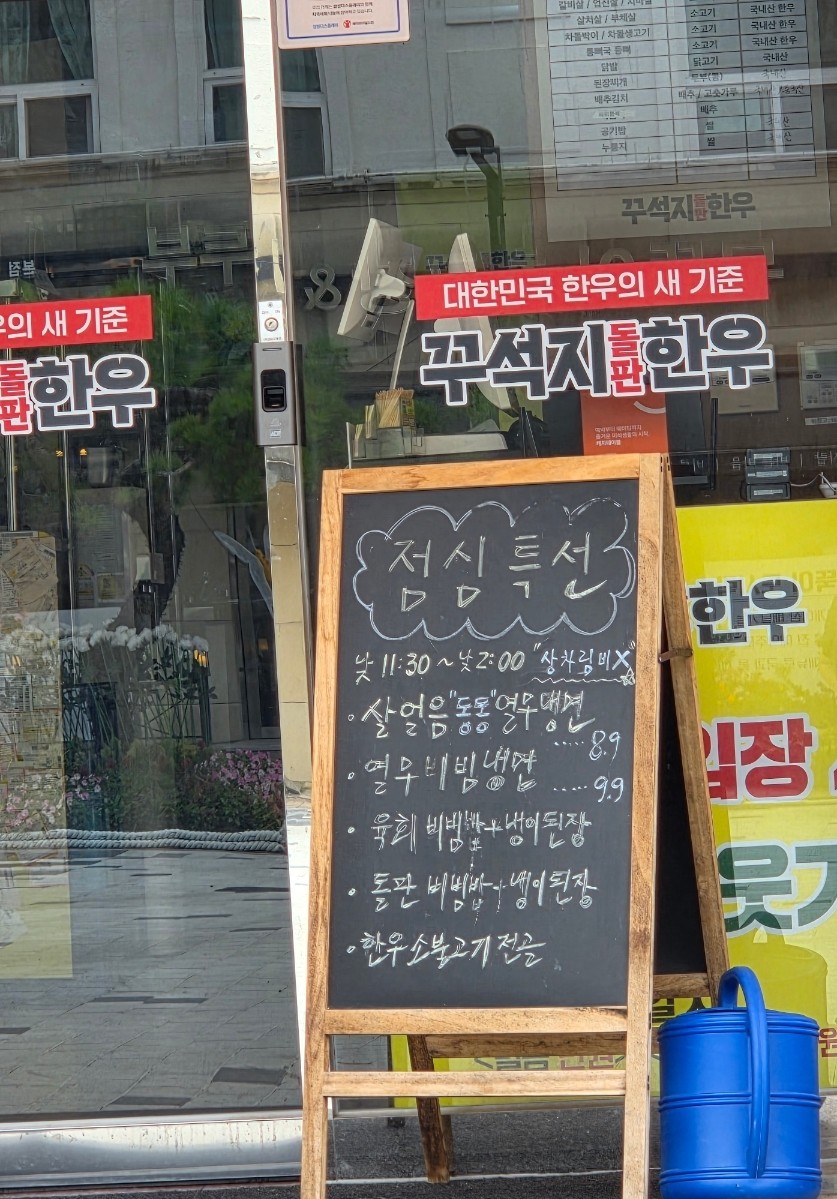 갈비살 / 안진살 / 치마살
살치살 / 부채살 소고기 국내산 한우
차돌박이 / 차돌생고기 소고기 국내산 한우
통뼈국 등뼈 소고기 국내산 한우
닭발 닭고기 국내산
된장찌개
배추김치 배추 / 고춧가루
공기밥 쌀
누룽지 쌀
꾸석지돌판한우
대한민국 한우의 새 기준
꾸석지돌판한우
우의 새 기준
돌판한우
점심특선
낮 11:30 ~ 낮 2:00 "상차림비X"
· 살얼음 "동동" 열무냉면
..... 8.9
· 열무비빔냉면
..... 9.9
· 육회 비빔밥 + 냉이된장
· 돌판 비빔밥 + 냉이된장
· 한우소불고기전골
한우
입장
웃기